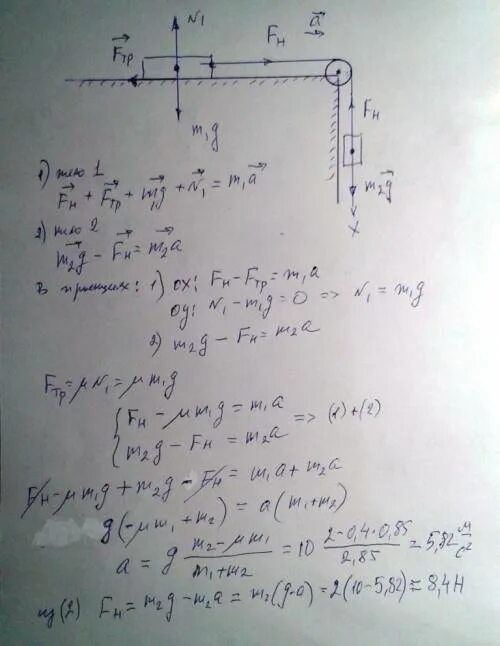 N₁
F⃗тр
Fн
a⃗
Fн
m₁g
m₂g⃗
x
1) тело 1
F⃗н + F⃗тр + m₁g⃗ + N⃗₁ = m₁a⃗
2) тело 2
m₂g⃗ - F⃗н = m₂a⃗
В проекциях: 1) ox: Fн - Fтр = m₁a
oy: N₁ - m₁g = 0 => N₁ = m₁g
2) m₂g - Fн = m₂a
Fтр = μN₁ = μm₁g
{ Fн - μm₁g = m₁a
m₂g - Fн = m₂a => (1)+(2)
Fн - μm₁g + m₂g - Fн = m₁a + m₂a
g(-μm₁ + m₂) = a(m₁+m₂)
a = g (m₂ - μm₁)/(m₁+m₂) = 10 (2 - 0,4·0,85)/2,85 = 5,82 м/с²
из (2) Fн = m₂g - m₂a = m₂(g-a) = 2(10-5,82) = 8,4 Н